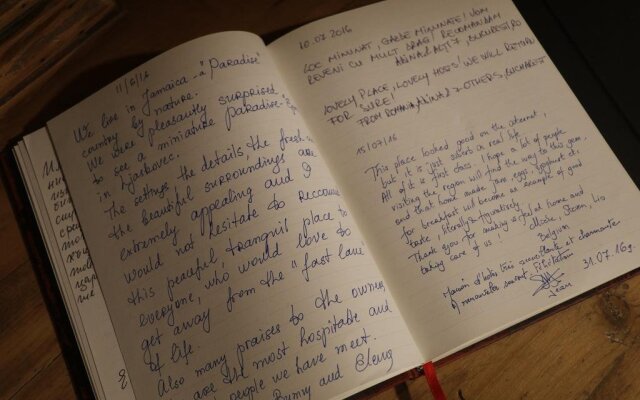 11/6/16
We live in Jamaica - a "Paradise"
country by nature.
We were pleasantly surprised
to see a miniature "Paradise"
in
The settings, the details, the fresh
the beautiful surroundings are
extremely appealing and I
would not hesitate to
this peaceful, tranquil place to
everyone, who would love to
get away from the "fast lane"
of life.
Also many praises to the owners
are the most hospitable and
people we have meet.
Bunny and
10.07.2016
LOC MINUNAT, GAZDE MINUNATE! VOM
REVENI CU MULT DRAG! RECOMANDAM
ALINA & ALTI 7, BUCURESTI, RO
LOVELY PLACE, LOVELY HOSTS! WE WILL RETURN
FOR SURE!
FROM ROMANIA, ALINA & 7 OTHERS, BUCHAREST
15/07/16
This place looked good on the internet,
but it is just in real life.
All of it is first class. I hope a lot of people
visiting the region will find the way to this gem,
and that home made jam, eggs, yoghurt etc.
for breakfast will become an example of good
taste, literal & figuratively.
Thank you for making a joyful home and
taking care of us!
Belgium
Maison d'hôtes très accueillante et charmante
Félicitations
31.07.16
Jean